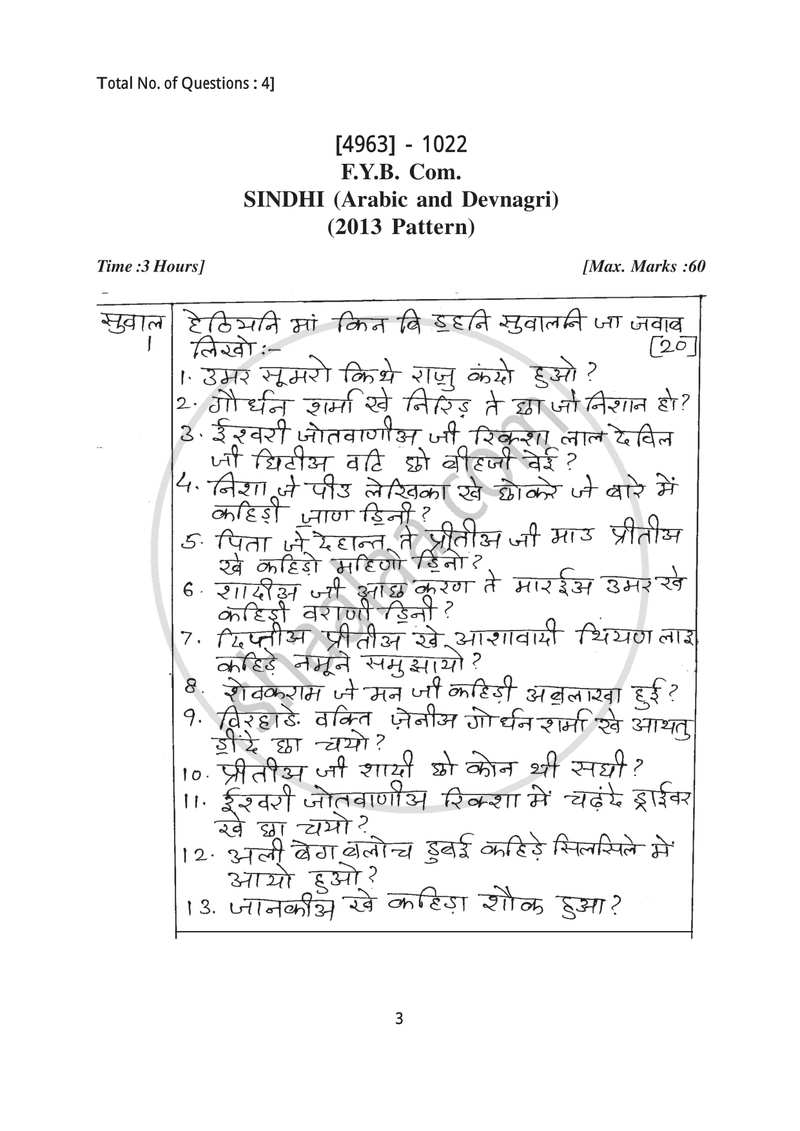 Total No. of Questions : 4]
[4963] - 1022
F.Y.B. Com.
SINDHI (Arabic and Devnagri)
(2013 Pattern)
Time :3 Hours] [Max. Marks :60
सुवाल हेठियनि मां किन बि ॾहनि सुवालनि जा जवाब
1 लिखो :- [20]
1. उमर सूमरो किथे राजु कंदो हुओ ?
2. गौर्धन शर्मा खे निरिड़ ते छा जो निशान हो?
3. ईश्वरी जोतवाणीअ जी रिक्शा लाल देविल
जी घिटीअ वटि छो बीहजी वेई ?
4. निशा जे पीउ लेखिका खे छोकरे जे बारे में
कहिड़ी ॼाण ॾिनी ?
5. पिता जे देहान्त ते प्रीतीअ जी माउ प्रीतीअ
खे कहिड़ो महिणो ॾिनो ?
6. शादीअ जी आछ करण ते मारईअ उमर खे
कहिड़ी वराणी ॾिनी ?
7. दिप्तीअ प्रीतीअ खे आशावादी थियण लाइ
कहिड़े नमूने समुझायो ?
8. शेवकराम जे मन जी कहिड़ी अॿलाखा हुई ?
9. विरहाङे वक्ति ज़ेनीअ गोर्धन शर्मा खे आथतु
ॾींदे छा चयो ?
10. प्रीतीअ जी शादी छो कोन थी सघी ?
11. ईश्वरी जोतवाणीअ रिक्शा में चढ़ंदे ड्राईवर
खे छा चयो ?
12. अली बेग बलोच दुबई कहिड़े सिलसिले में
आयो हुओ ?
13. जानकीअ खे कहिड़ा शौक हुआ ?
3
shaalaa.com